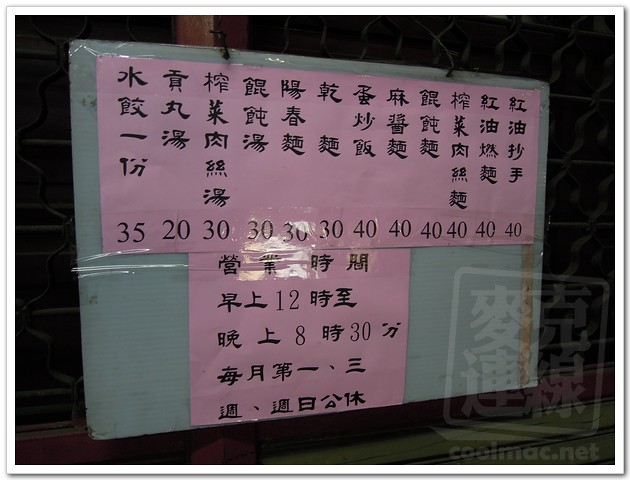 紅油抄手 40
紅油燃麵 40
榨菜肉絲麵 40
餛飩麵 40
麻醬麵 40
蛋炒飯 40
乾麵 30
陽春麵 30
餛飩湯 30
榨菜肉絲湯 30
貢丸湯 20
水餃一份 35
營業時間
早上12時至
晚上8時30分
每月第一、三
週、週日公休
麥克連線
coolmac.net